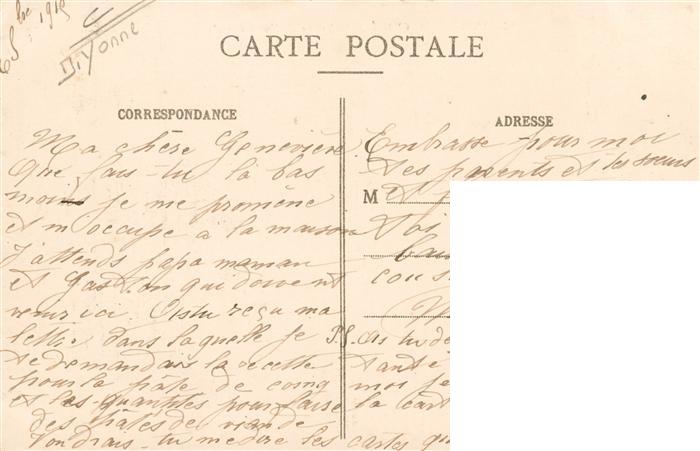 bre 1919
Divonne
CARTE POSTALE
CORRESPONDANCE
Ma chère Geneviève
Que fais-tu là bas
moi je me promène
et m'occupe à la maison
J'attends papa maman
et Gaston qui doivent
venir ici. As tu reçu ma
lettre dans laquelle je
te demandais la recette
pour la pâte de coing
et les quantités pour faire
des pâtés de viande
Voudrais-tu me dire les cartes
ADRESSE
Embrasse pour moi
tes parents et tes sœurs
M et
toi
cous
P.S. As tu
moi je
la cart